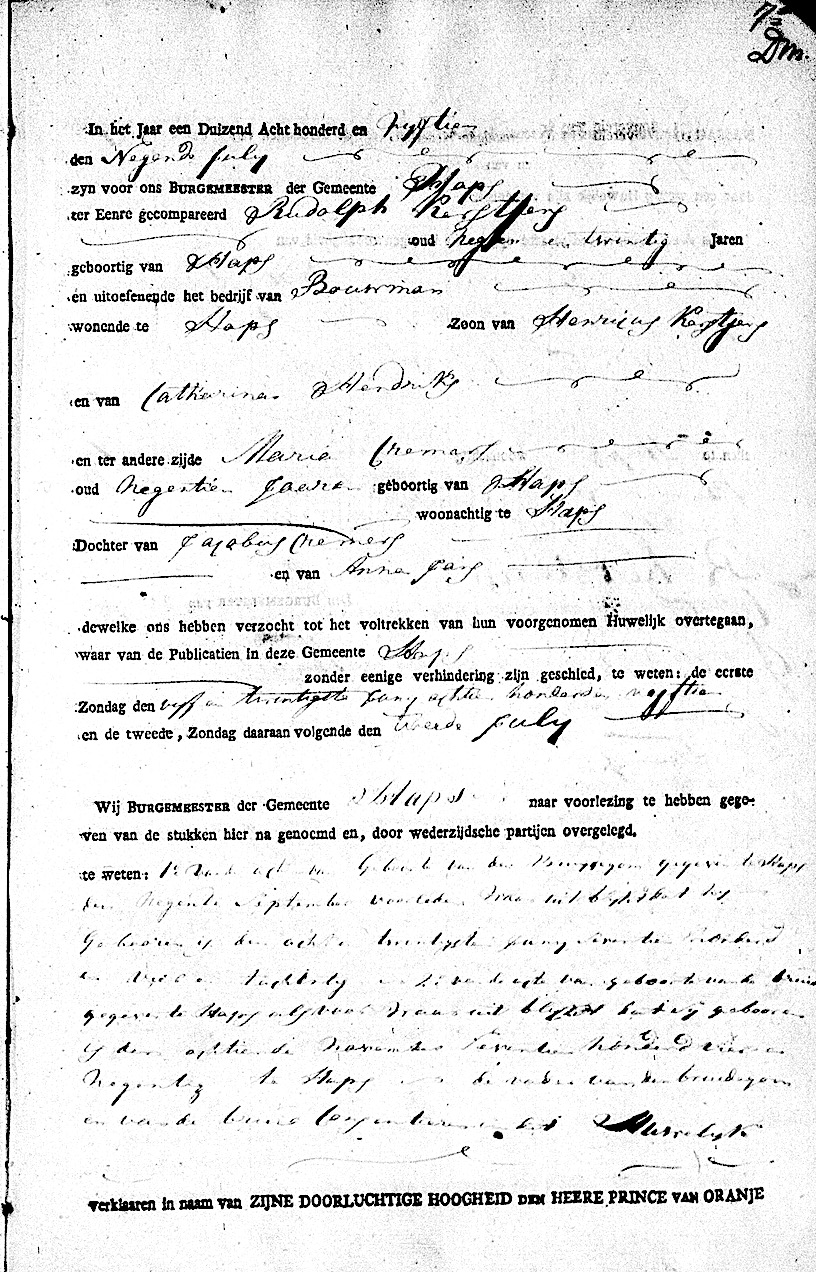 7
In het Jaar een Duizend Acht honderd en vyftien
den Negende July
zyn voor ons BURGEMEESTER der Gemeente Haps
ter Eenre gecompareerd Rudolph Kerstjens
oud negen en twintig Jaren
geboortig van Haps
en uitoefenende het bedrijf van Bouwman
wonende te Haps Zoon van Henricus Kerstjens
en van Catharina Hendriks
en ter andere zijde Maria Cremers
oud Negentien Jaaren geboortig van Haps
woonachtig te Haps
Dochter van Jacobus Cremers
en van Anna
dewelke ons hebben verzocht tot het voltrekken van hun voorgenomen Huwelijk overtegaan,
waar van de Publicatien in deze Gemeente Haps
zonder eenige verhindering zijn geschied, te weten: de eerste
Zondag den vyf en twintigste Juny achtien honderd en vyftien
en de tweede, Zondag daaraan volgende den tweede July
Wij BURGEMEESTER der Gemeente Haps naar voorlezing te hebben gege-
ven van de stukken hier na genoemd en, door wederzijdsche partijen overgelegd.
te weten: 1e van de acte van Geboorte van den Bruydegom gegeven te Haps
den Negende September voorleden waar uit blykt dat hy
Gebooren is den acht en twintigsten Juny seventien honderd
en tachtig en 2e van de acte van geboorte van de bruid
gegeven te Haps waar uit blykt dat zy gebooren
is den achtiende November seventien honderd vier en
Negentig te Haps de vader van den bruidegom
en van de bruid consenteeren in het Huwelyk
verklaaren in naam van ZIJNE DOORLUCHTIGE HOOGHEID DEN HEERE PRINCE VAN ORANJE